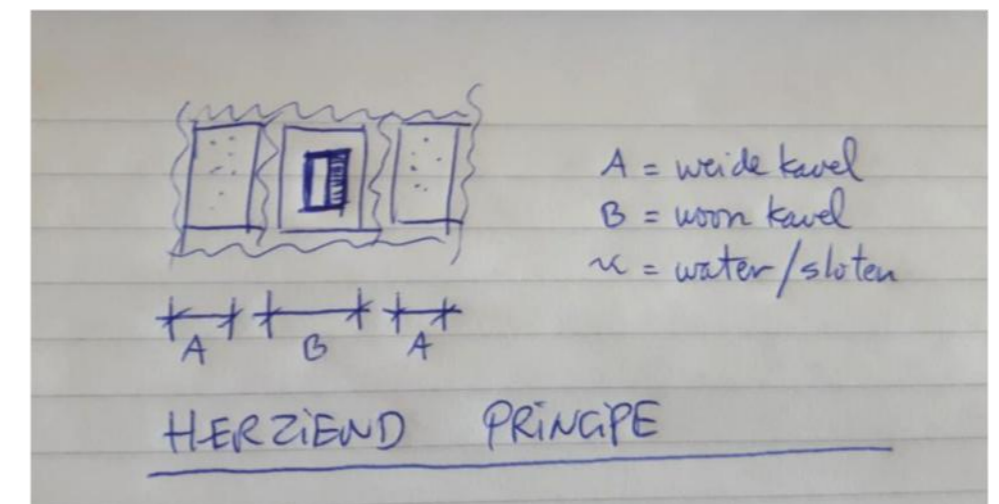 A = weide kavel
B = woon kavel
~ = water/sloten
A B A
HERZIEND PRINCIPE